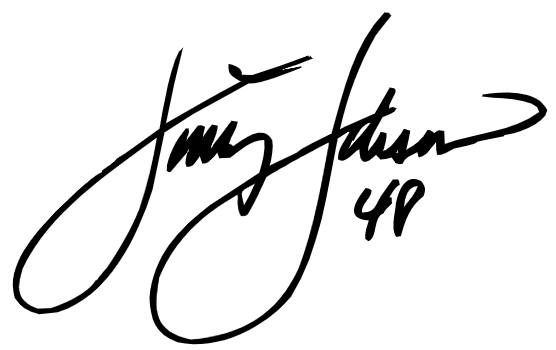 Jimmy Johnson
48